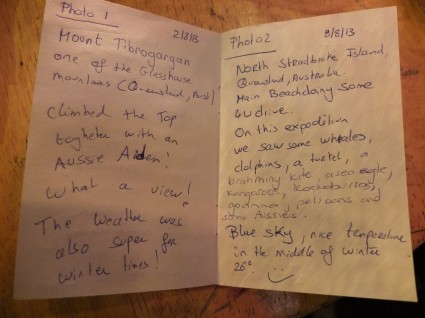 Photo 1 2/8/13
Mount Tibrogargan
one of the Glasshouse
mountains (Queensland, Aust)
Climbed the Top
togheter with an
Aussie Aiden!
What a view!
The Weather was
also super for
winter times!
Photo 2 8/8/13
North Stradbroke Island,
Queensland, Australia.
Main Beach doing some
4u drive.
On this expodition
we saw some whales,
dolphins, a turtel, a
brahminy kite, a sea eagle,
kangaroos,
goannas, pelicans and
some Aussies.
Blue sky, nice temperature
in the middle of winter
26°